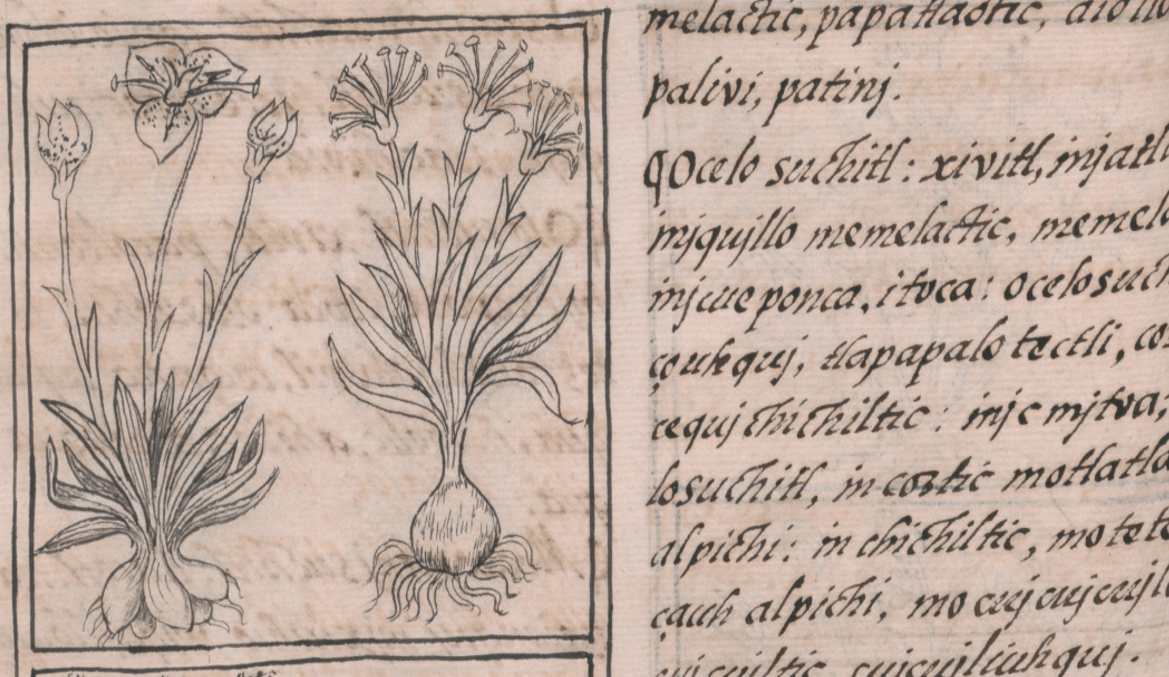 melactic, papatlaotic,
palivi, patinj.
¶Ocelo suchitl: xivitl, injatla
injquillo memelactic, memel
injcueponca, itoca: ocelosuch
çouhquj, tlapapalo tectli, co
cequj chichiltic: injc mjtoa,
losuchitl, in coztic motlatla
alpichi: in chichiltic, mo tete
çauh alpichi, mo cujcujcujl
cujcuiltic, cujcujliuhquj.